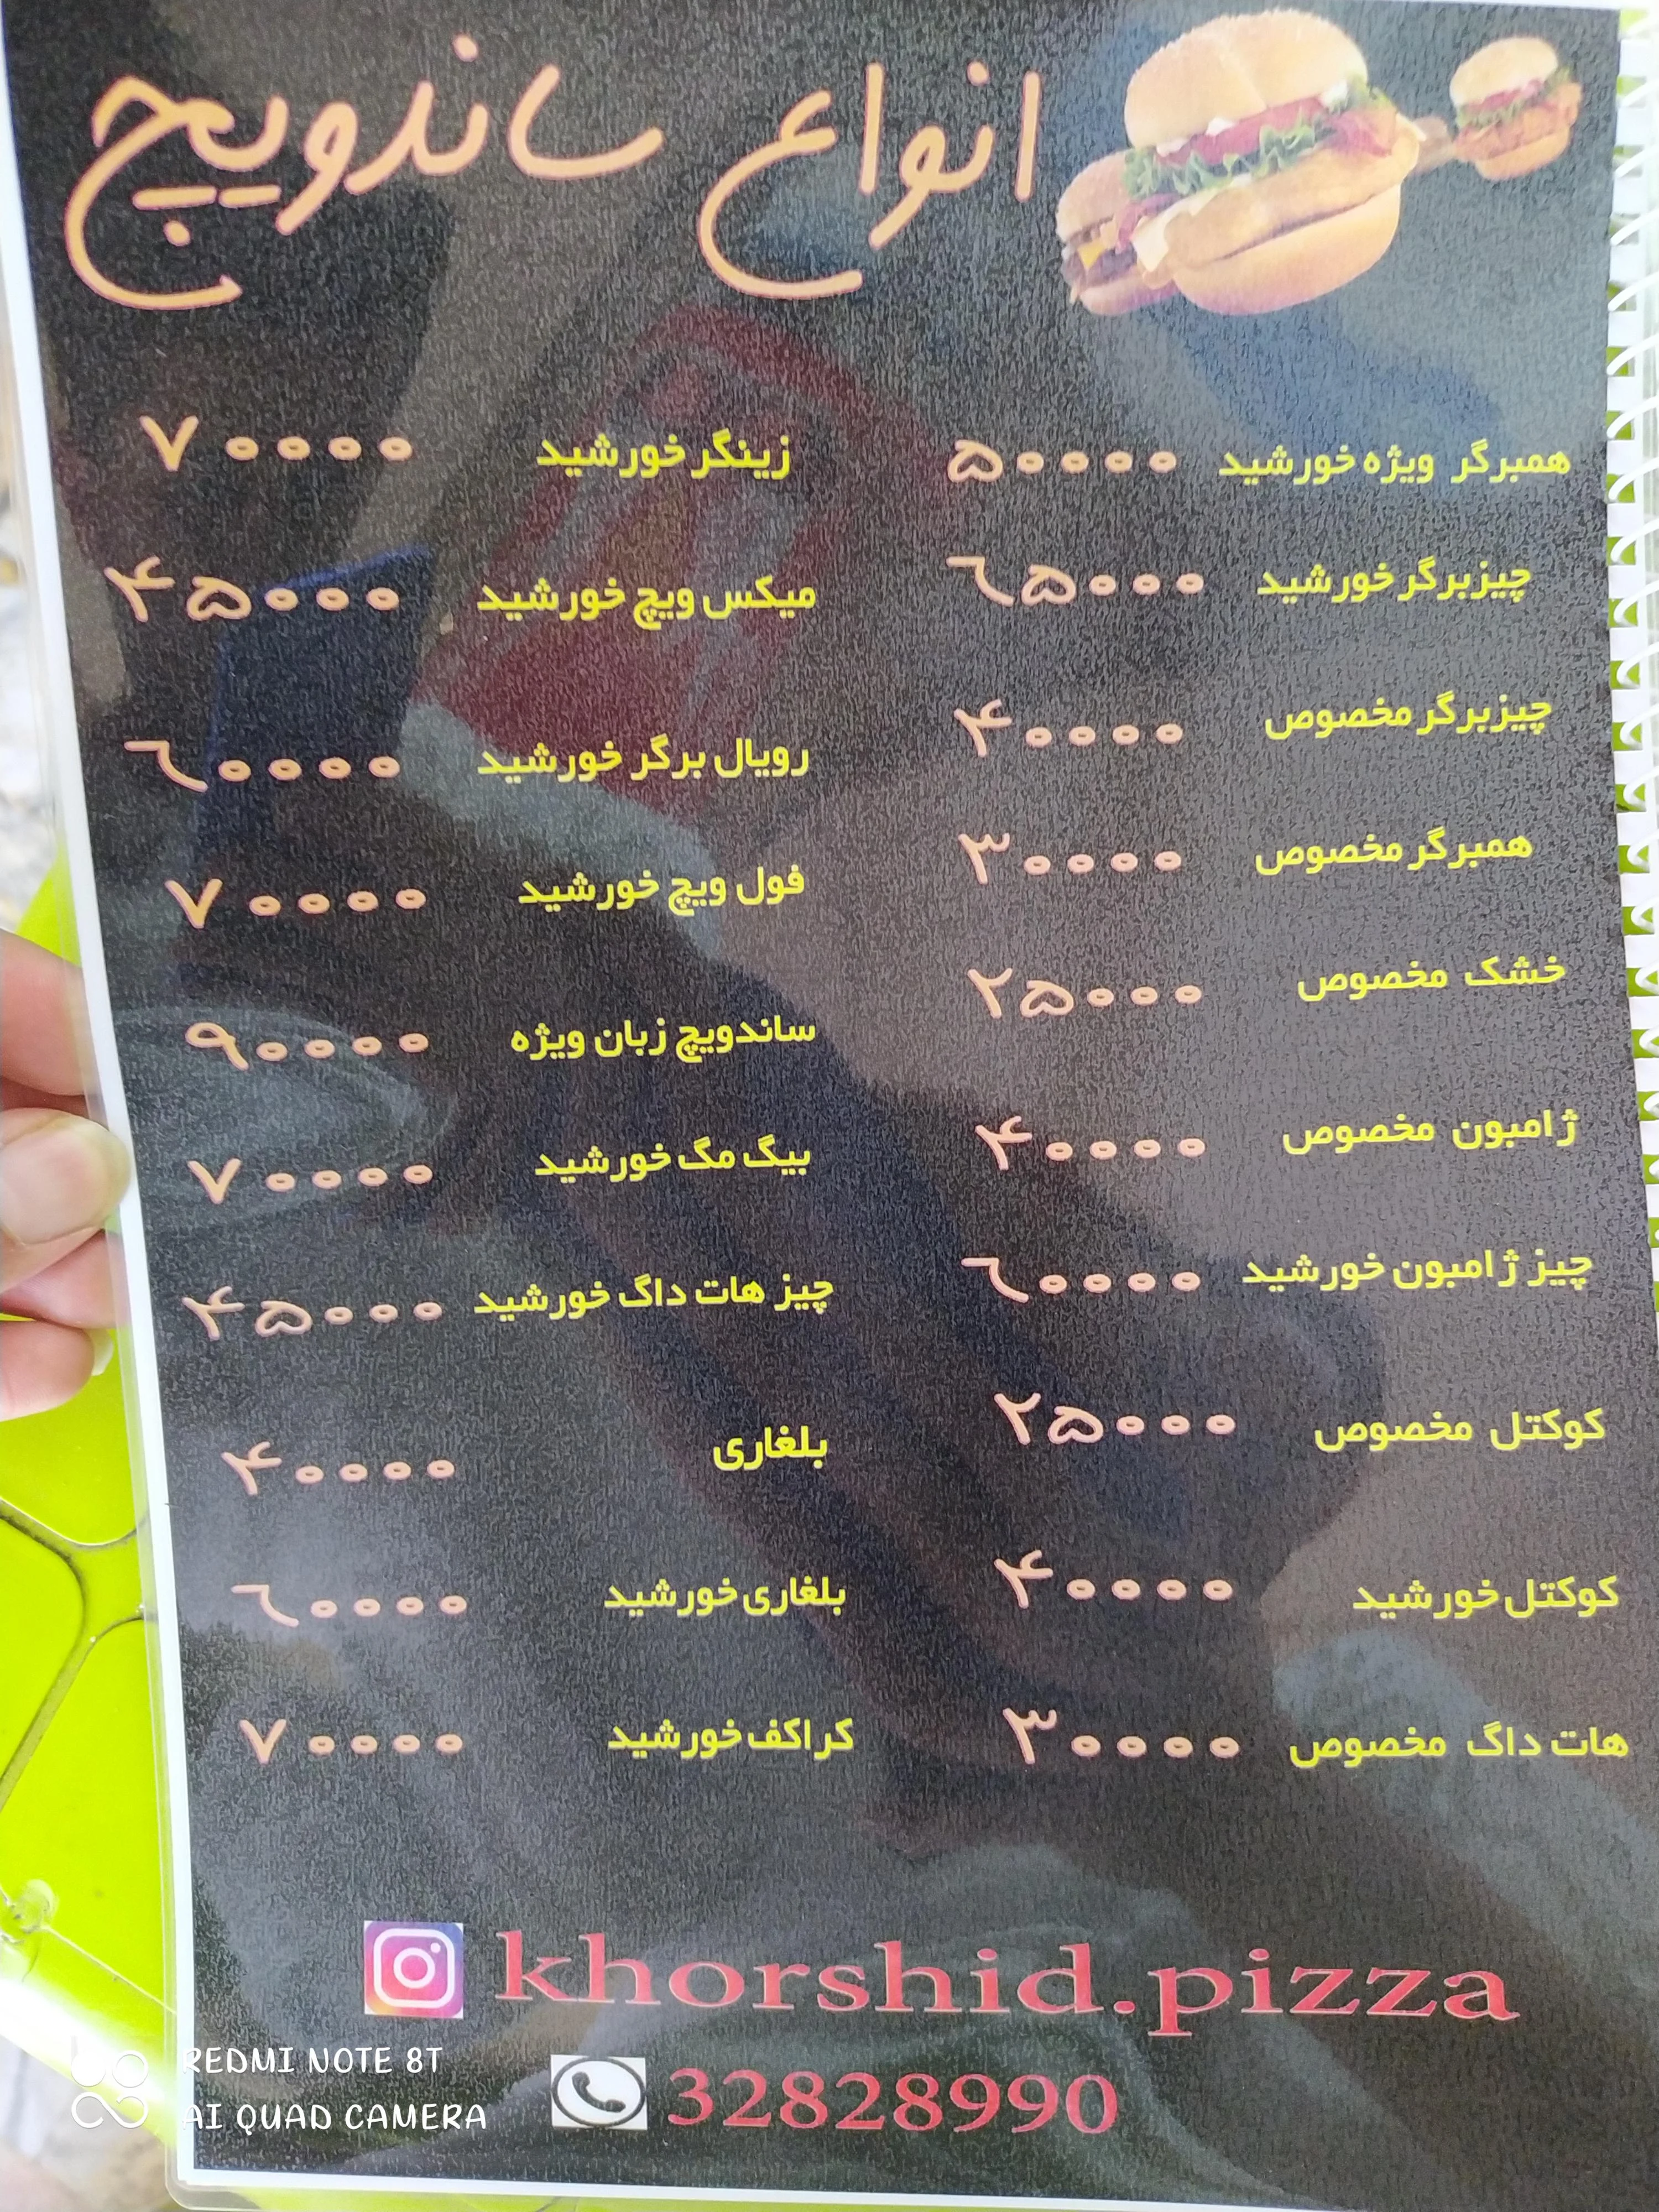 انواع ساندویچ
همبرگر ویژه خورشید ۵۰۰۰۰
چیزبرگر خورشید ۶۵۰۰۰
چیزبرگر مخصوص ۴۰۰۰۰
همبرگر مخصوص ۳۰۰۰۰
خشک مخصوص ۲۵۰۰۰
ژامبون مخصوص ۴۰۰۰۰
چیز ژامبون خورشید ۶۰۰۰۰
کوکتل مخصوص ۲۵۰۰۰
کوکتل خورشید ۴۰۰۰۰
هات داگ مخصوص ۳۰۰۰۰
زینگر خورشید ۷۰۰۰۰
میکس ویچ خورشید ۴۵۰۰۰
رویال برگر خورشید ۶۰۰۰۰
فول ویچ خورشید ۷۰۰۰۰
ساندویچ زبان ویژه ۹۰۰۰۰
بیگ مگ خورشید ۷۰۰۰۰
چیز هات داگ خورشید ۴۵۰۰۰
بلغاری ۴۰۰۰۰
بلغاری خورشید ۶۰۰۰۰
کراکف خورشید ۷۰۰۰۰
khorshid.pizza
32828990
REDMI NOTE 8T
AI QUAD CAMERA